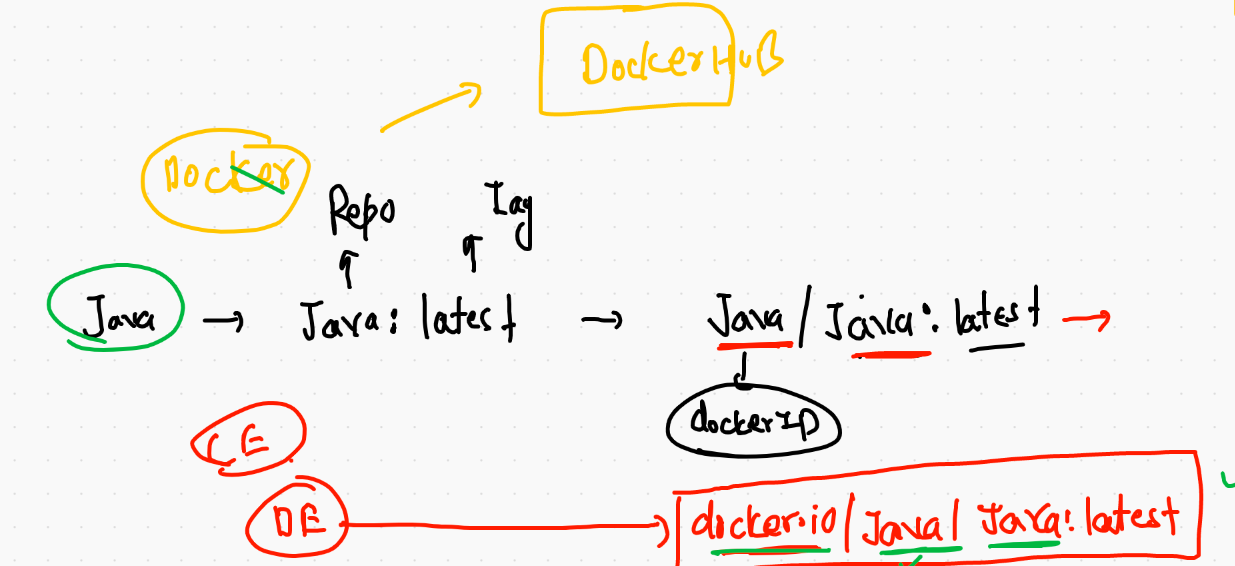 DockerHuB
Docker
Repo Tag
Java → Java: latest → Java / Java: latest →
dockerID
CE
DE → docker.io / Java / Java: latest